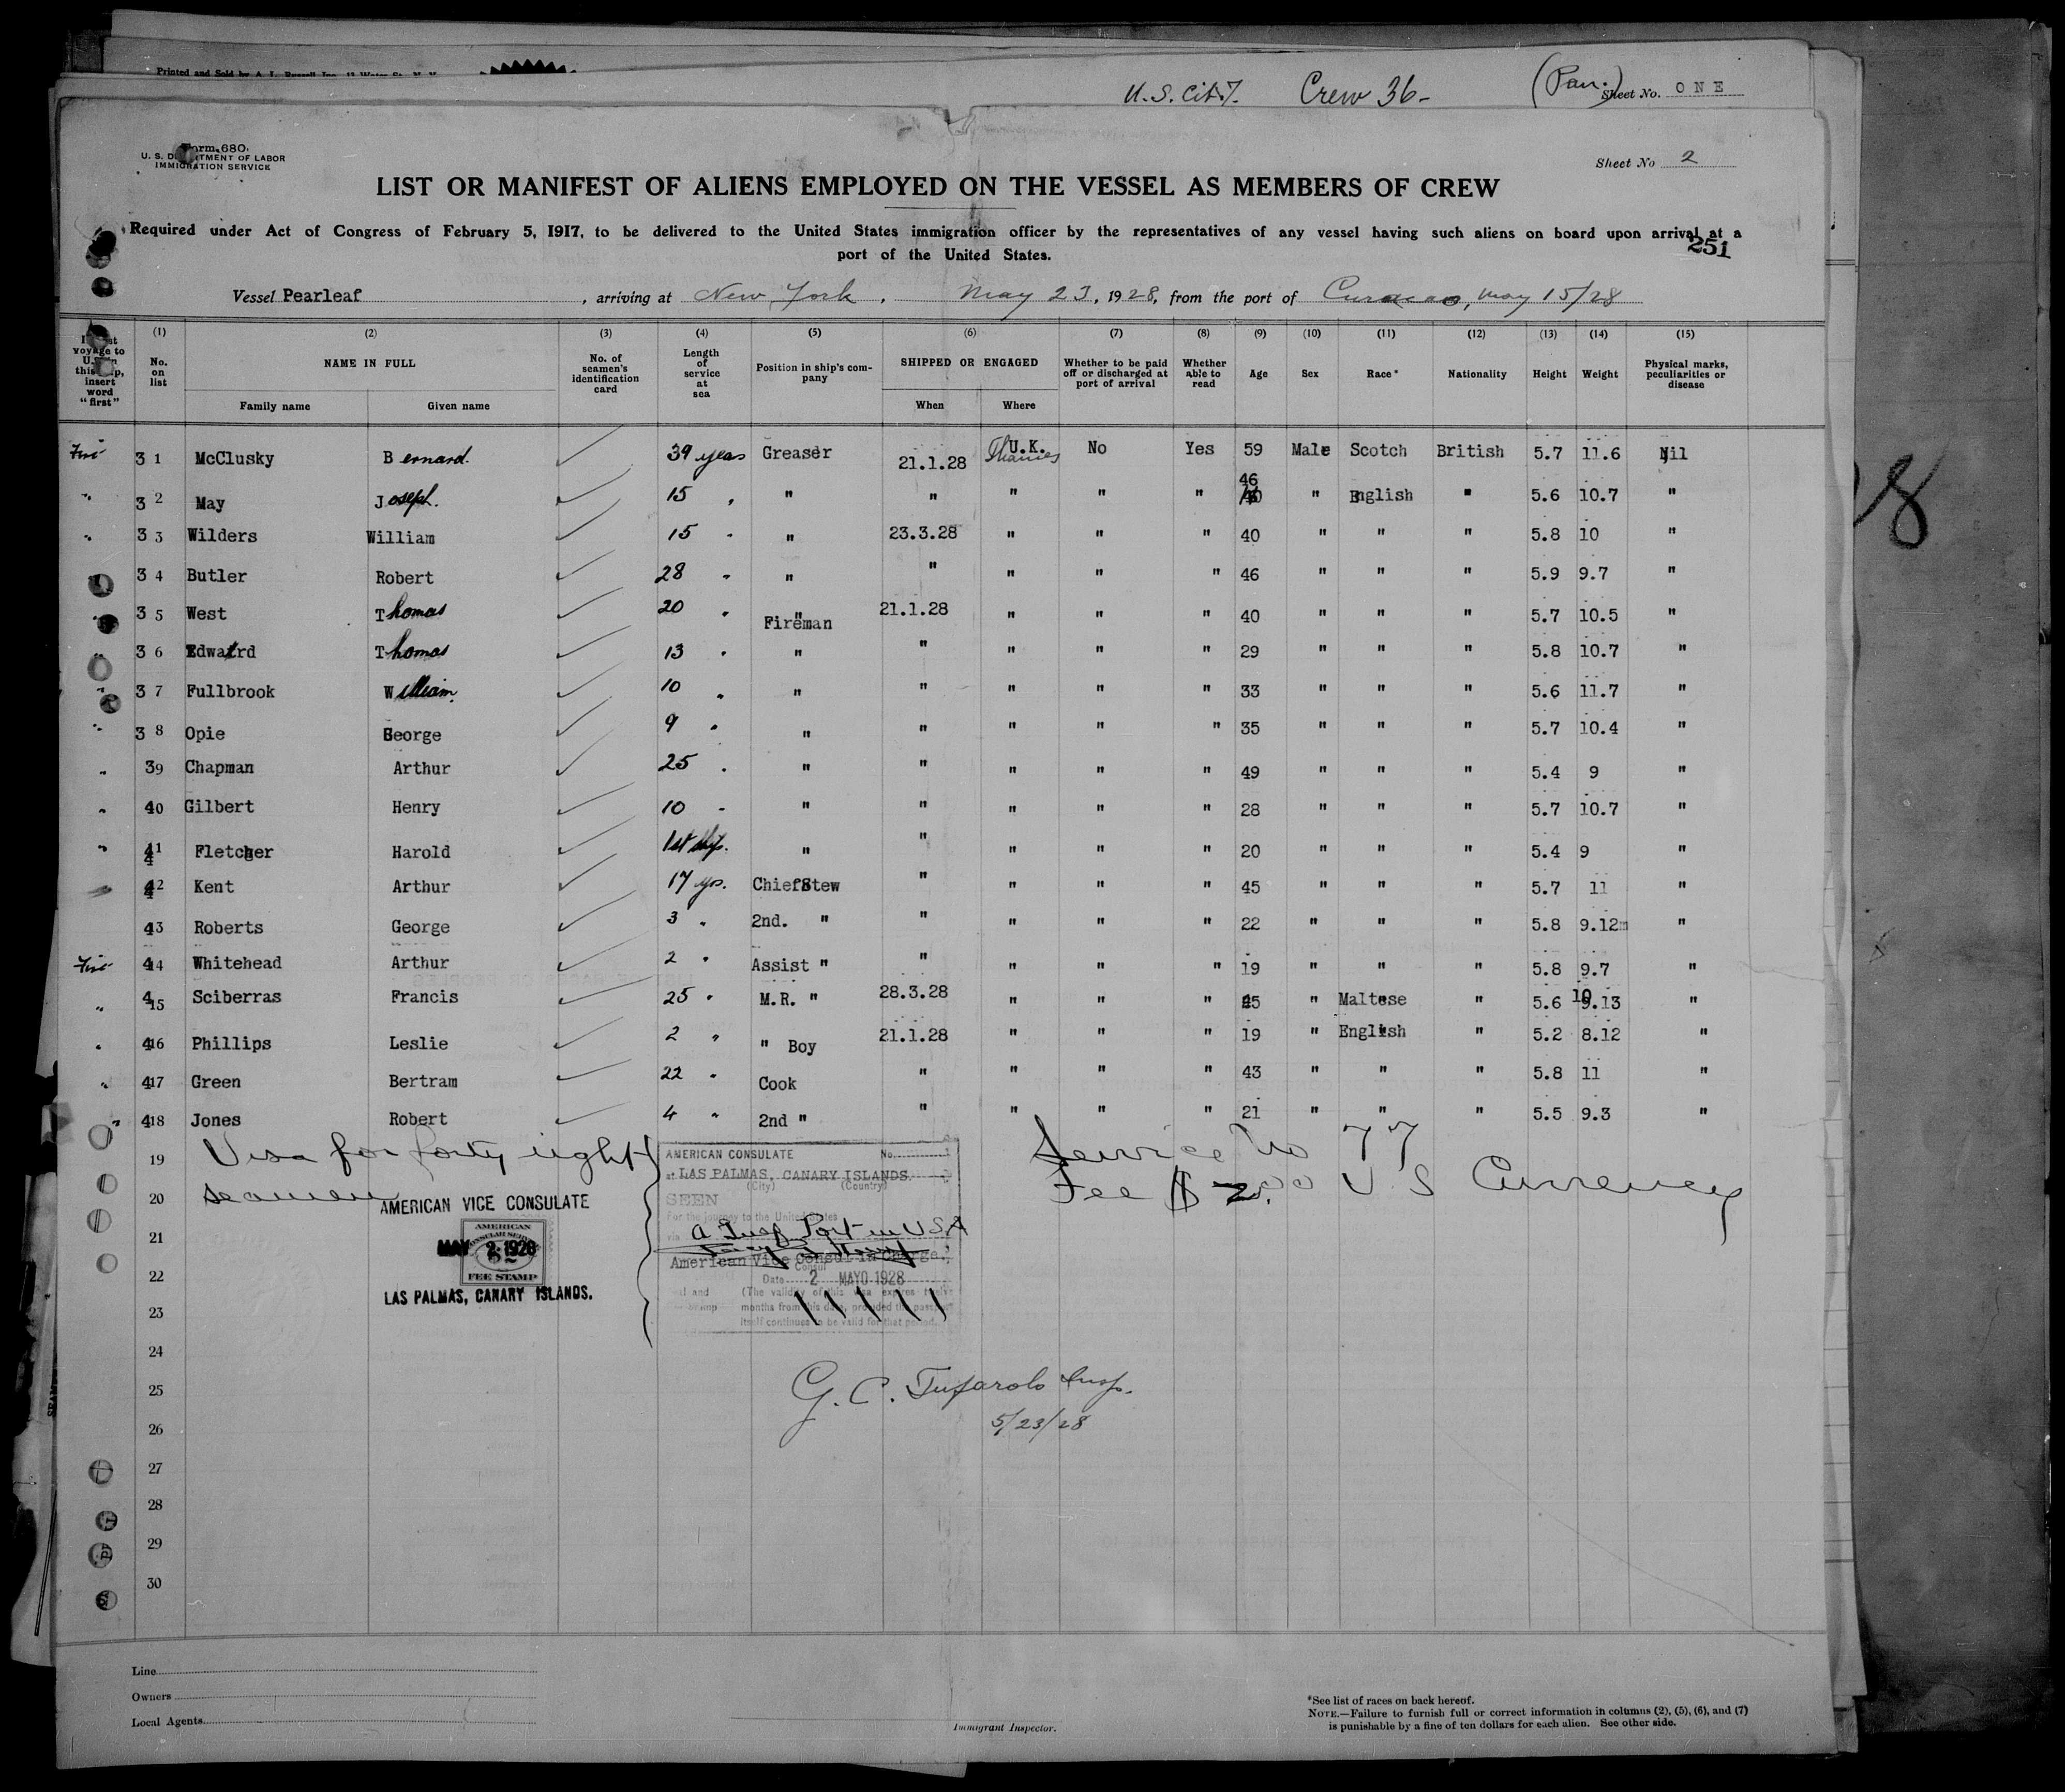 Printed and Sold by A. L. Russell Inc.
U.S. Crew 36-
Sheet No. ONE
Form 680
U. S. DEPARTMENT OF LABOR
IMMIGRATION SERVICE
Sheet No 2
LIST OR MANIFEST OF ALIENS EMPLOYED ON THE VESSEL AS MEMBERS OF CREW
Required under Act of Congress of February 5, 1917, to be delivered to the United States immigration officer by the representatives of any vessel having such aliens on board upon arrival at a
port of the United States.
251
Vessel Pearleaf , arriving at New York, May 23, 1928, from the port of Curacao, May 15/28
(1) (2) (3) (4) (5) (6) (7) (8) (9) (10) (11) (12) (13) (14) (15)
voyage to U.S. in this ship, insert word "first" No. on list NAME IN FULL No. of seamen's identification card Length of service at sea Position in ship's company SHIPPED OR ENGAGED Whether to be paid off or discharged at port of arrival Whether able to read Age Sex Race* Nationality Height Weight Physical marks, peculiarities or disease
Family name Given name When Where
31 McClusky Bernard 39 years Greaser 21.1.28 U.K. Thames No Yes 59 Male Scotch British 5.7 11.6 Nil
" 32 May Joseph. 15 " " " " " " 46 " English " 5.6 10.7 "
" 33 Wilders William 15 " " 23.3.28 " " " 40 " " " 5.8 10 "
34 Butler Robert 28 " " " " " " 46 " " " 5.9 9.7 "
35 West Thomas 20 " " Fireman 21.1.28 " " " 40 " " " 5.7 10.5 "
" 36 Edward Thomas 13 " " " " " " 29 " " " 5.8 10.7 "
" 37 Fullbrook William. 10 " " " " " " 33 " " " 5.6 11.7 "
" 38 Opie George 9 " " " " " " 35 " " " 5.7 10.4 "
" 39 Chapman Arthur 25 " " " " " " 49 " " " 5.4 9 "
" 40 Gilbert Henry 10 " " " " " " 28 " " " 5.7 10.7 "
" 41 Fletcher Harold 1st ship. " " " " " 20 " " " 5.4 9 "
42 Kent Arthur 17 yrs. Chief Stew " " " " 45 " " " 5.7 11 "
43 Roberts George 3 " 2nd. " " " " " 22 " " " 5.8 9.12 "
44 Whitehead Arthur 2 " Assist " " " " " 19 " " " 5.8 9.7 "
" 45 Sciberras Francis 25 " M.R. " 28.3.28 " " " 45 " Maltese " 5.6 "
" 46 Phillips Leslie 2 " " Boy 21.1.28 " " " 19 " English " 5.2 8.12 "
" 47 Green Bertram 22 " Cook " " " " 43 " " " 5.8 11 "
" 48 Jones Robert 4 " 2nd " " " " " 21 " " " 5.5 9.3 "
19 Visa for forty eight
20 seamen
21
22
23
24
25
26
27
28
29
30
AMERICAN VICE CONSULATE
AMERICAN
CONSULAR SERVICE
MAY 2 1928
FEE STAMP
LAS PALMAS, CANARY ISLANDS.
AMERICAN CONSULATE No.
at LAS PALMAS, CANARY ISLANDS.
(City) (Country)
SEEN
For the journey to the United States
via Port in USA
American Vice Consul in Charge.
Consul
Date 2 MAYO 1928
(The validity of this visa expires twelve
months from this date, provided the passport
itself continues to be valid for that period.
Service No 77
Fee $2.00 U S Currency
G. C. Insp.
5/23/28
Line
Owners
Local Agents
Immigrant Inspector.
*See list of races on back hereof.
NOTE.—Failure to furnish full or correct information in columns (2), (5), (6), and (7)
is punishable by a fine of ten dollars for each alien. See other side.